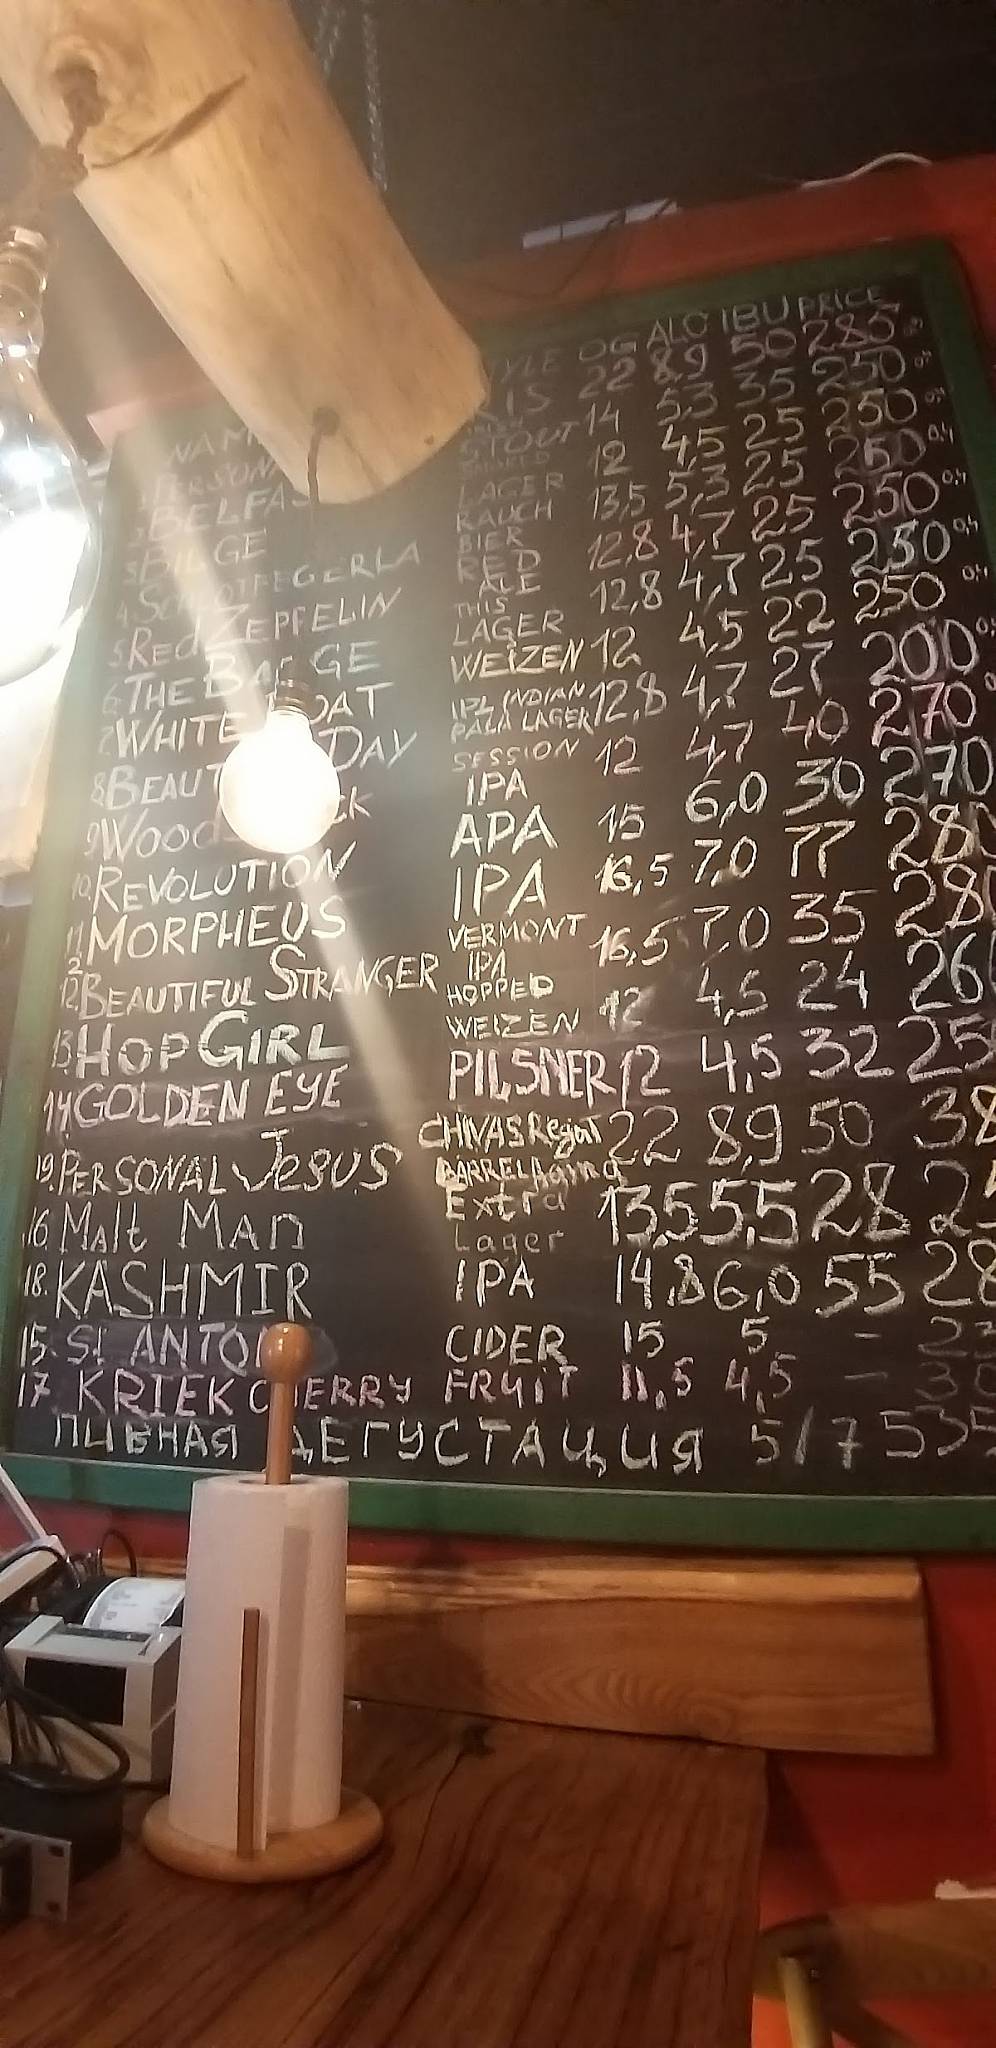 STYLE OG ALC IBU PRICE
22 8,9 50 285
2. BELFAS STOUT 14 5,3 35 250
3. BILGE LAGER 12 4,5 25 250
4. SCHLOTFEGERLA RAUCH BIER 13,5 5,3 25 250 0,4
5. RED ZEPPELIN RED ALE 12,8 4,7 25 250 0,4
6. THE BA GE THIS LAGER 12,8 4,7 25 250 0,4
7. WHITE OAT WEIZEN 12 4,5 22 250 0,4
8. BEAUT DAY IPL INDIAN PALA LAGER 12,8 4,7 27 200
9. WOOD CK SESSION IPA 12 4,7 40 270
10. REVOLUTION APA 15 6,0 30 270
11. MORPHEUS IPA 16,5 7,0 77 280
12. BEAUTIFUL STRANGER VERMONT IPA 16,5 7,0 35 280
13. HOP GIRL HOPPED WEIZEN 12 4,5 24 26
14. GOLDEN EYE PILSNER 12 4,5 32 25
19. PERSONAL JESUS CHIVAS Regat BARREL Aging 22 8,9 50 38
16. Malt MAN Extra Lager 13,5 5,5 28 2
18. KASHMIR IPA 14,8 6,0 55 28
15. St ANTON CIDER 15 5 - 23
17 KRIEK CHERRY FRUIT 11,5 4,5 - 30
ПИВНАЯ ДЕГУСТАЦИЯ 5/7 535